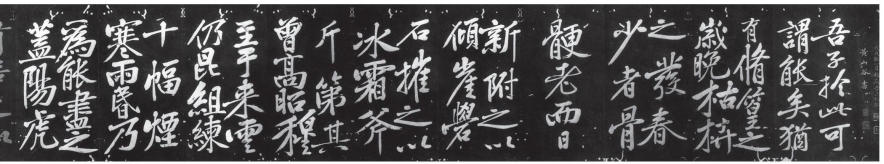 黃山谷書
吾子於此可
謂能矣猶
有脩篁之
歲晚枯枿
之發春
少者骨
鯁老而日
新附之以
傾崖礐
石摧之以
冰霜斧
斤第其
曾高昭穆
至于來雲
仍昆組練
十幅煙
寒雨昏乃
為能盡之
蓋陽虎